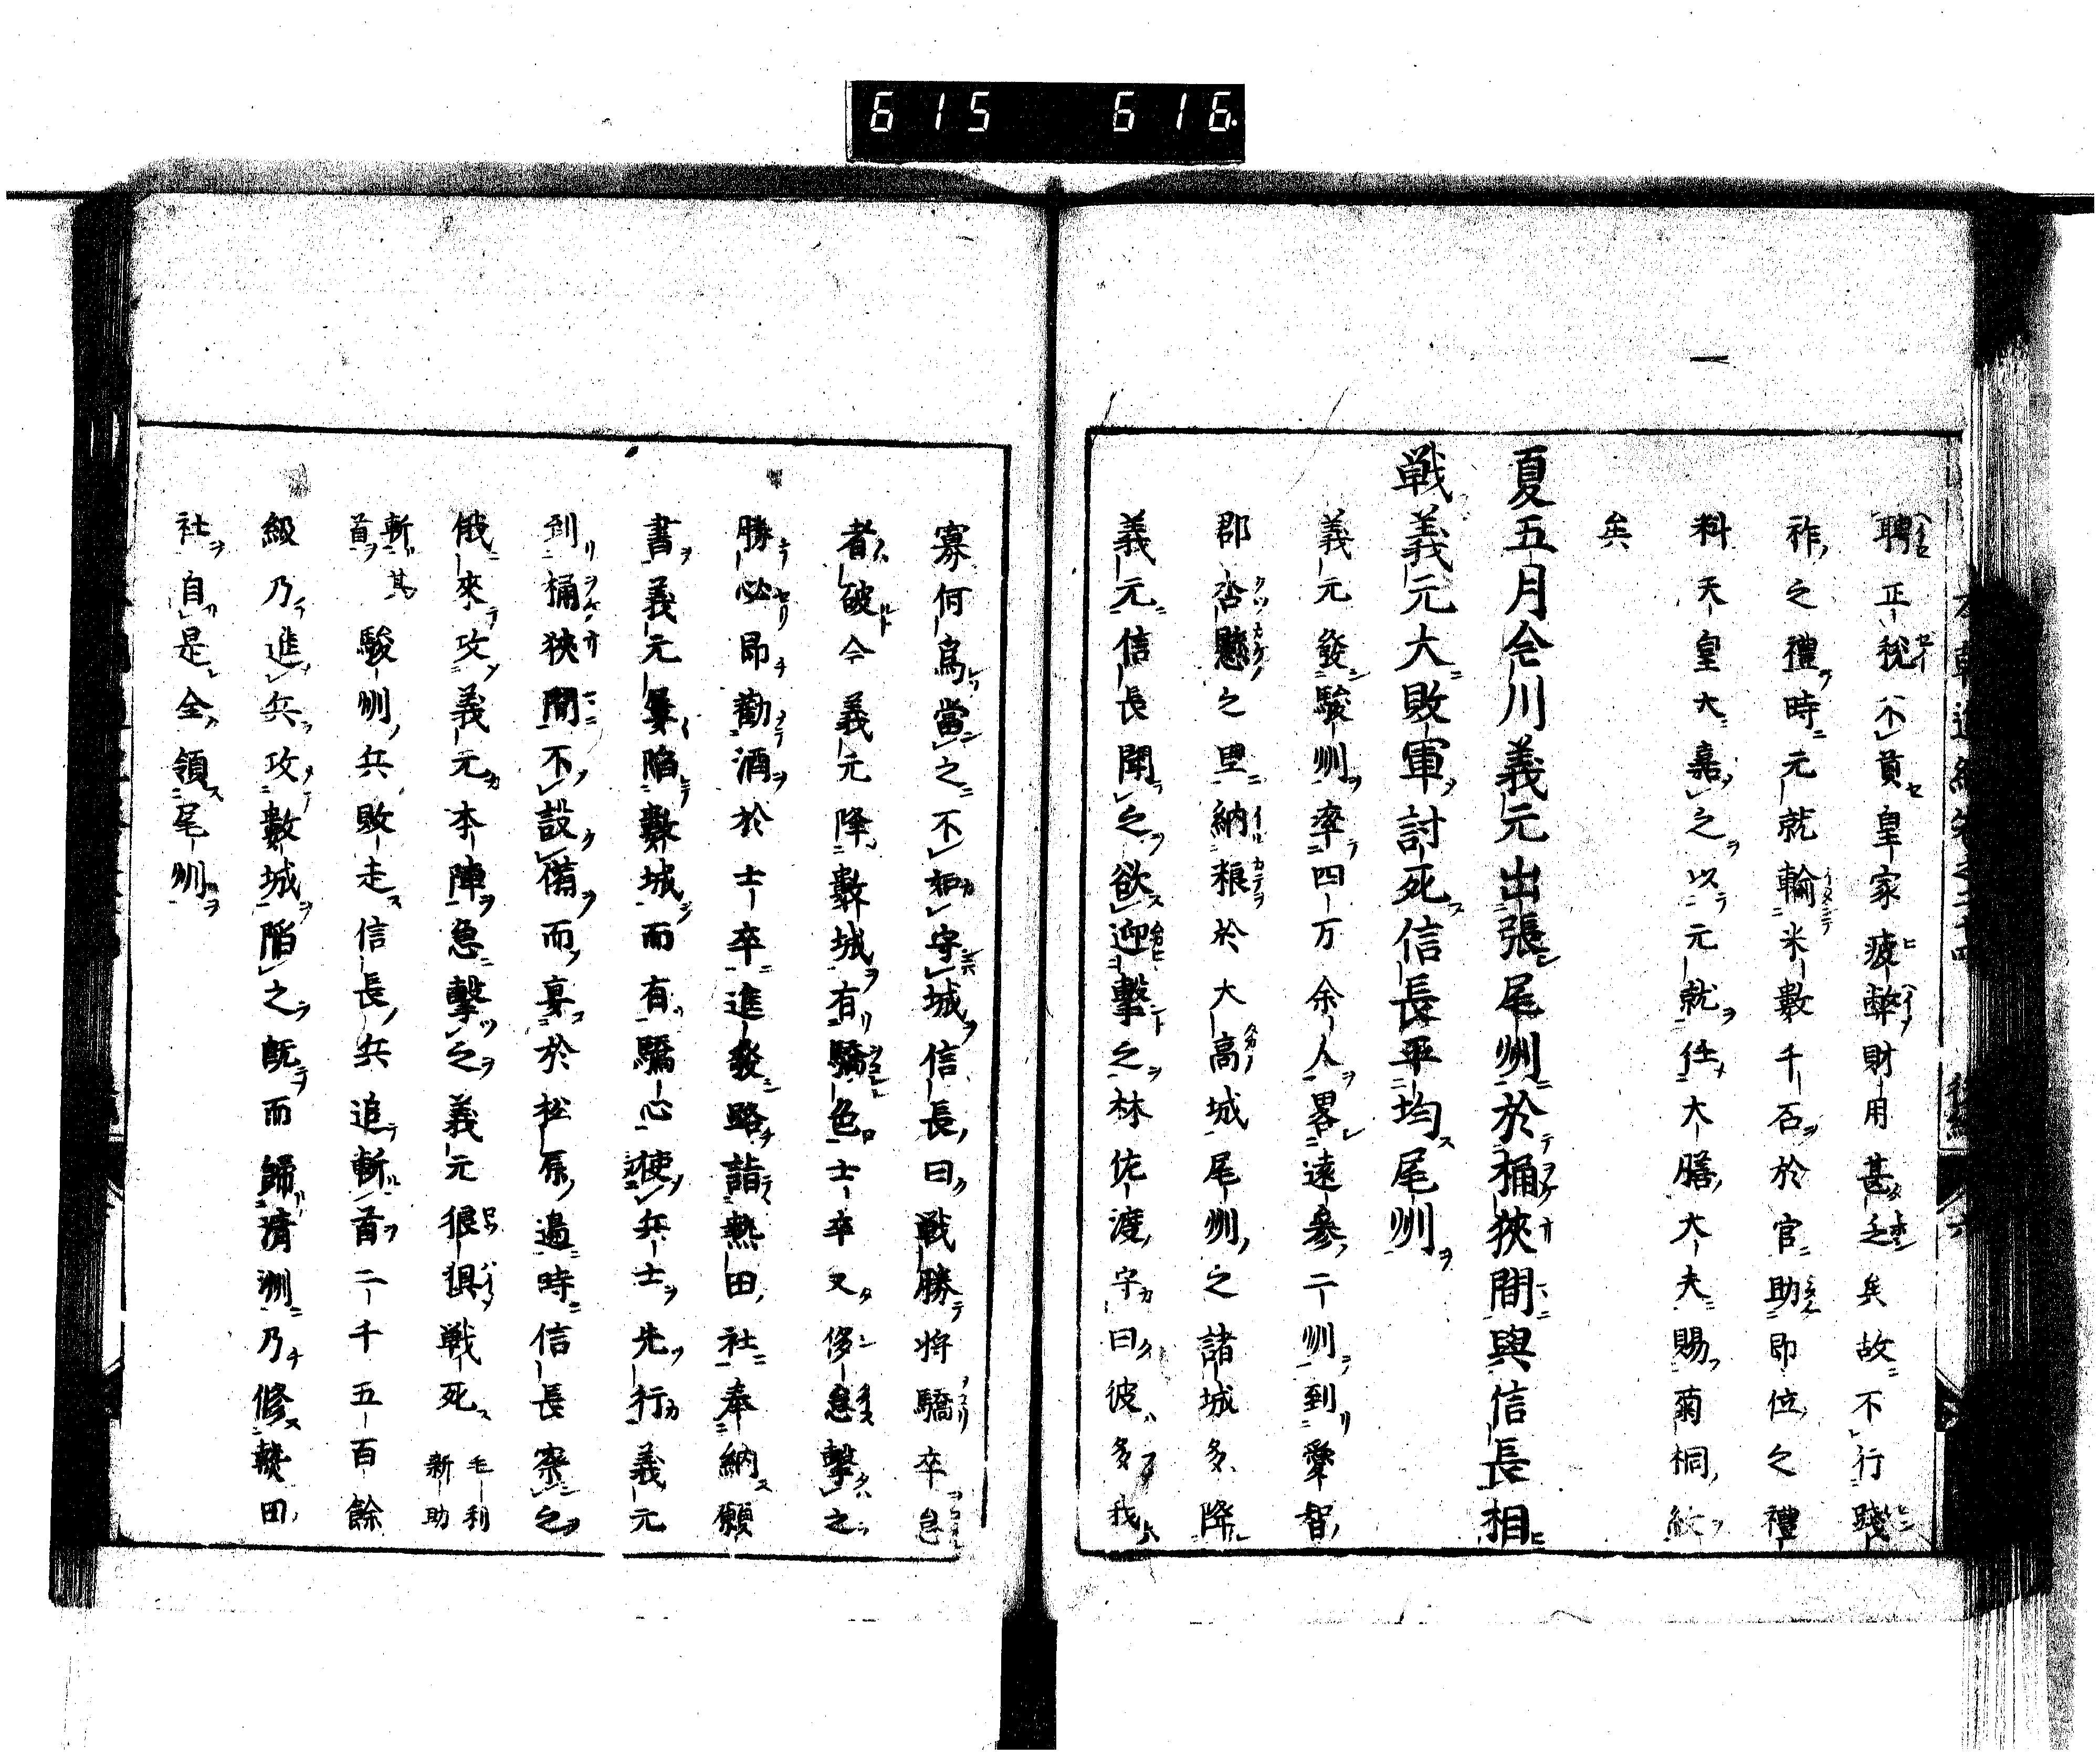 615 616
聘正税不貢皇家疲弊財用甚乏矣故不行踐
祚之禮時元就輸米數千石於官助即位之禮
料天皇大嘉之以元就任大膳大夫賜菊桐紋
矣
夏五月今川義元出張尾州於桶狹間與信長相
戦義元大敗軍討死信長平均尾州
義元發駿州率四万余人畧遠參二州到愛智
郡沓懸之里納粮於大高城尾州之諸城多降
義元信長聞之欲迎擊之林佐渡守曰彼多我
寡何爲當之不如守城信長曰戦勝將驕卒怠
者破今義元降數城有驕色士卒又侈怠擊之
勝必即勸酒於士卒進發路詣熱田社奉納願
書義元屢陷數城而有驕心使兵士先行義元
到桶狹間不設備而宴於松原邉時信長察之
俄來攻義元本陣急擊之義元狼狽戦死毛利新助
斬其首駿州兵敗走信長兵追斬首二千五百餘
級乃進兵攻數城陷之既而歸清洲乃修熱田
社自是全領尾州